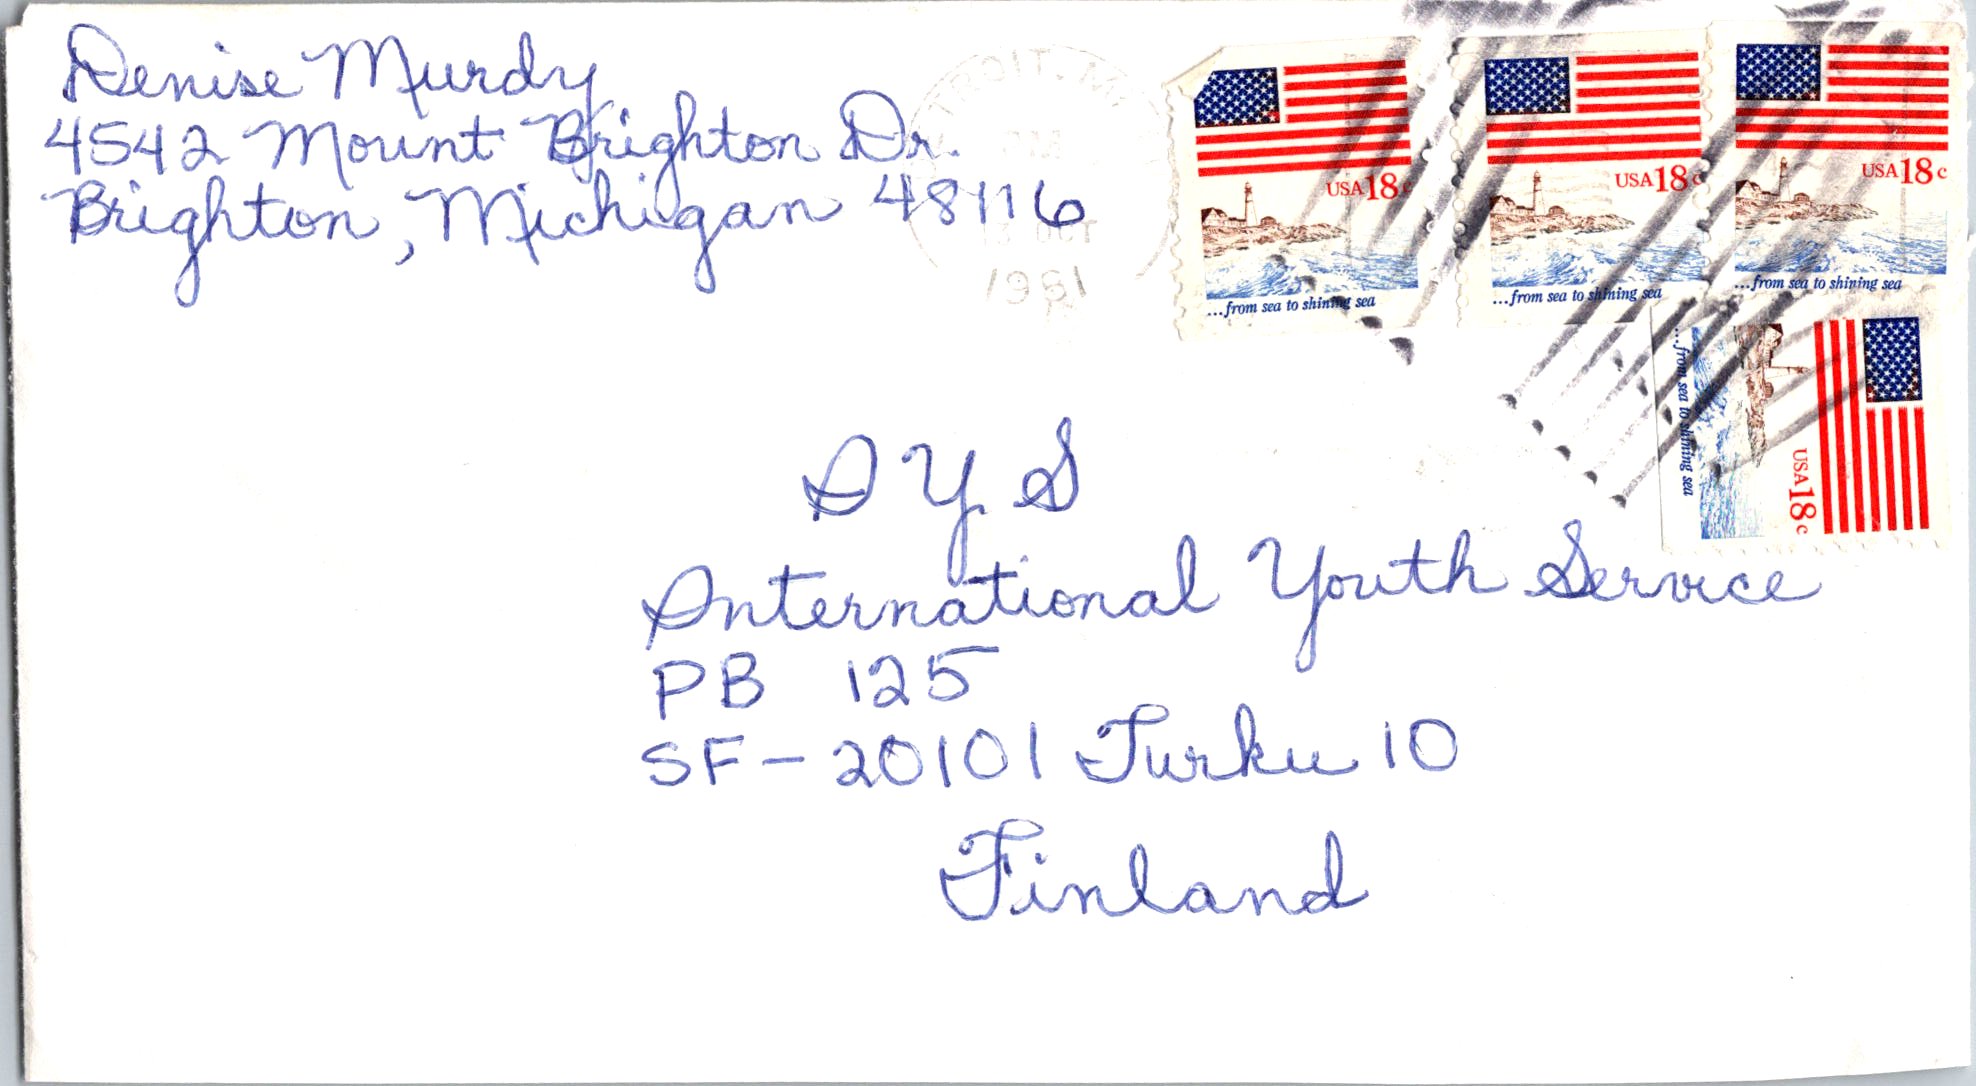 Denise Murdy
4542 Mount Brighton Dr.
Brighton, Michigan 48116
1981
USA 18c
...from sea to shining sea
USA 18c
...from sea to shining sea
USA 18c
...from sea to shining sea
USA 18c
...from sea to shining sea
I Y S
International Youth Service
PB 125
SF-20101 Turku 10
Finland